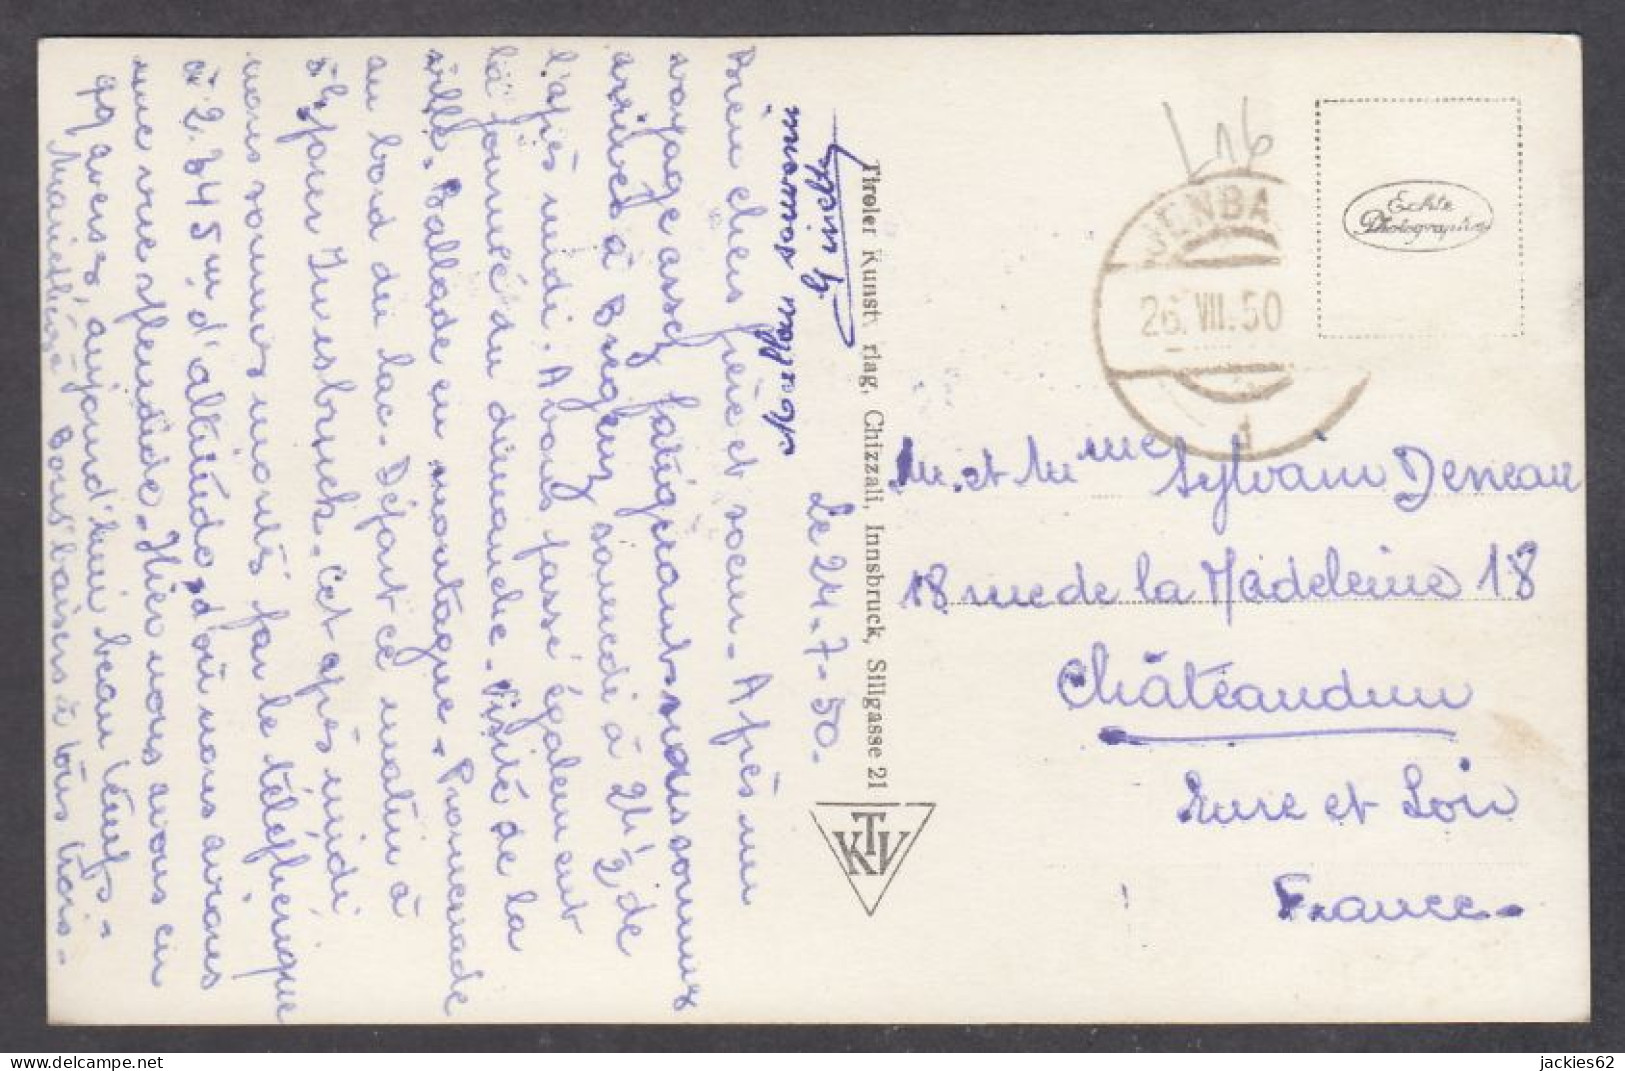 Le 24-7-50.
Bien chers frère et soeur. Après un
voyage assez fatigérant nous sommes
arrivés à Bregenz samedi à 2h½ de
l'après midi. Avons passé également
la journée du dimanche. Visite de la
ville. Ballade en montagne. Promenade
au bord du lac. Départ ce matin à
pour Innsbruck. Cet après midi
nous sommes montés par le téléphérique
à 2.345m d'altitude, d'où nous avions
une vue splendide. Hier nous avons eu
qq averses, aujourd'hui beau temps.
Bons baisers à tous trois.
Meilleur souvenir
Tiroler Kunstv rlag, Chizzali, Innsbruck, Sillgasse 21
KTV
L16
JENBA
26.VII.50
1
Echte
Photographie
Mr. et Mme Sylvain Deneau
18 rue de la Madeleine 18
Châteaudun
Eure et Loir
France.
jackies62